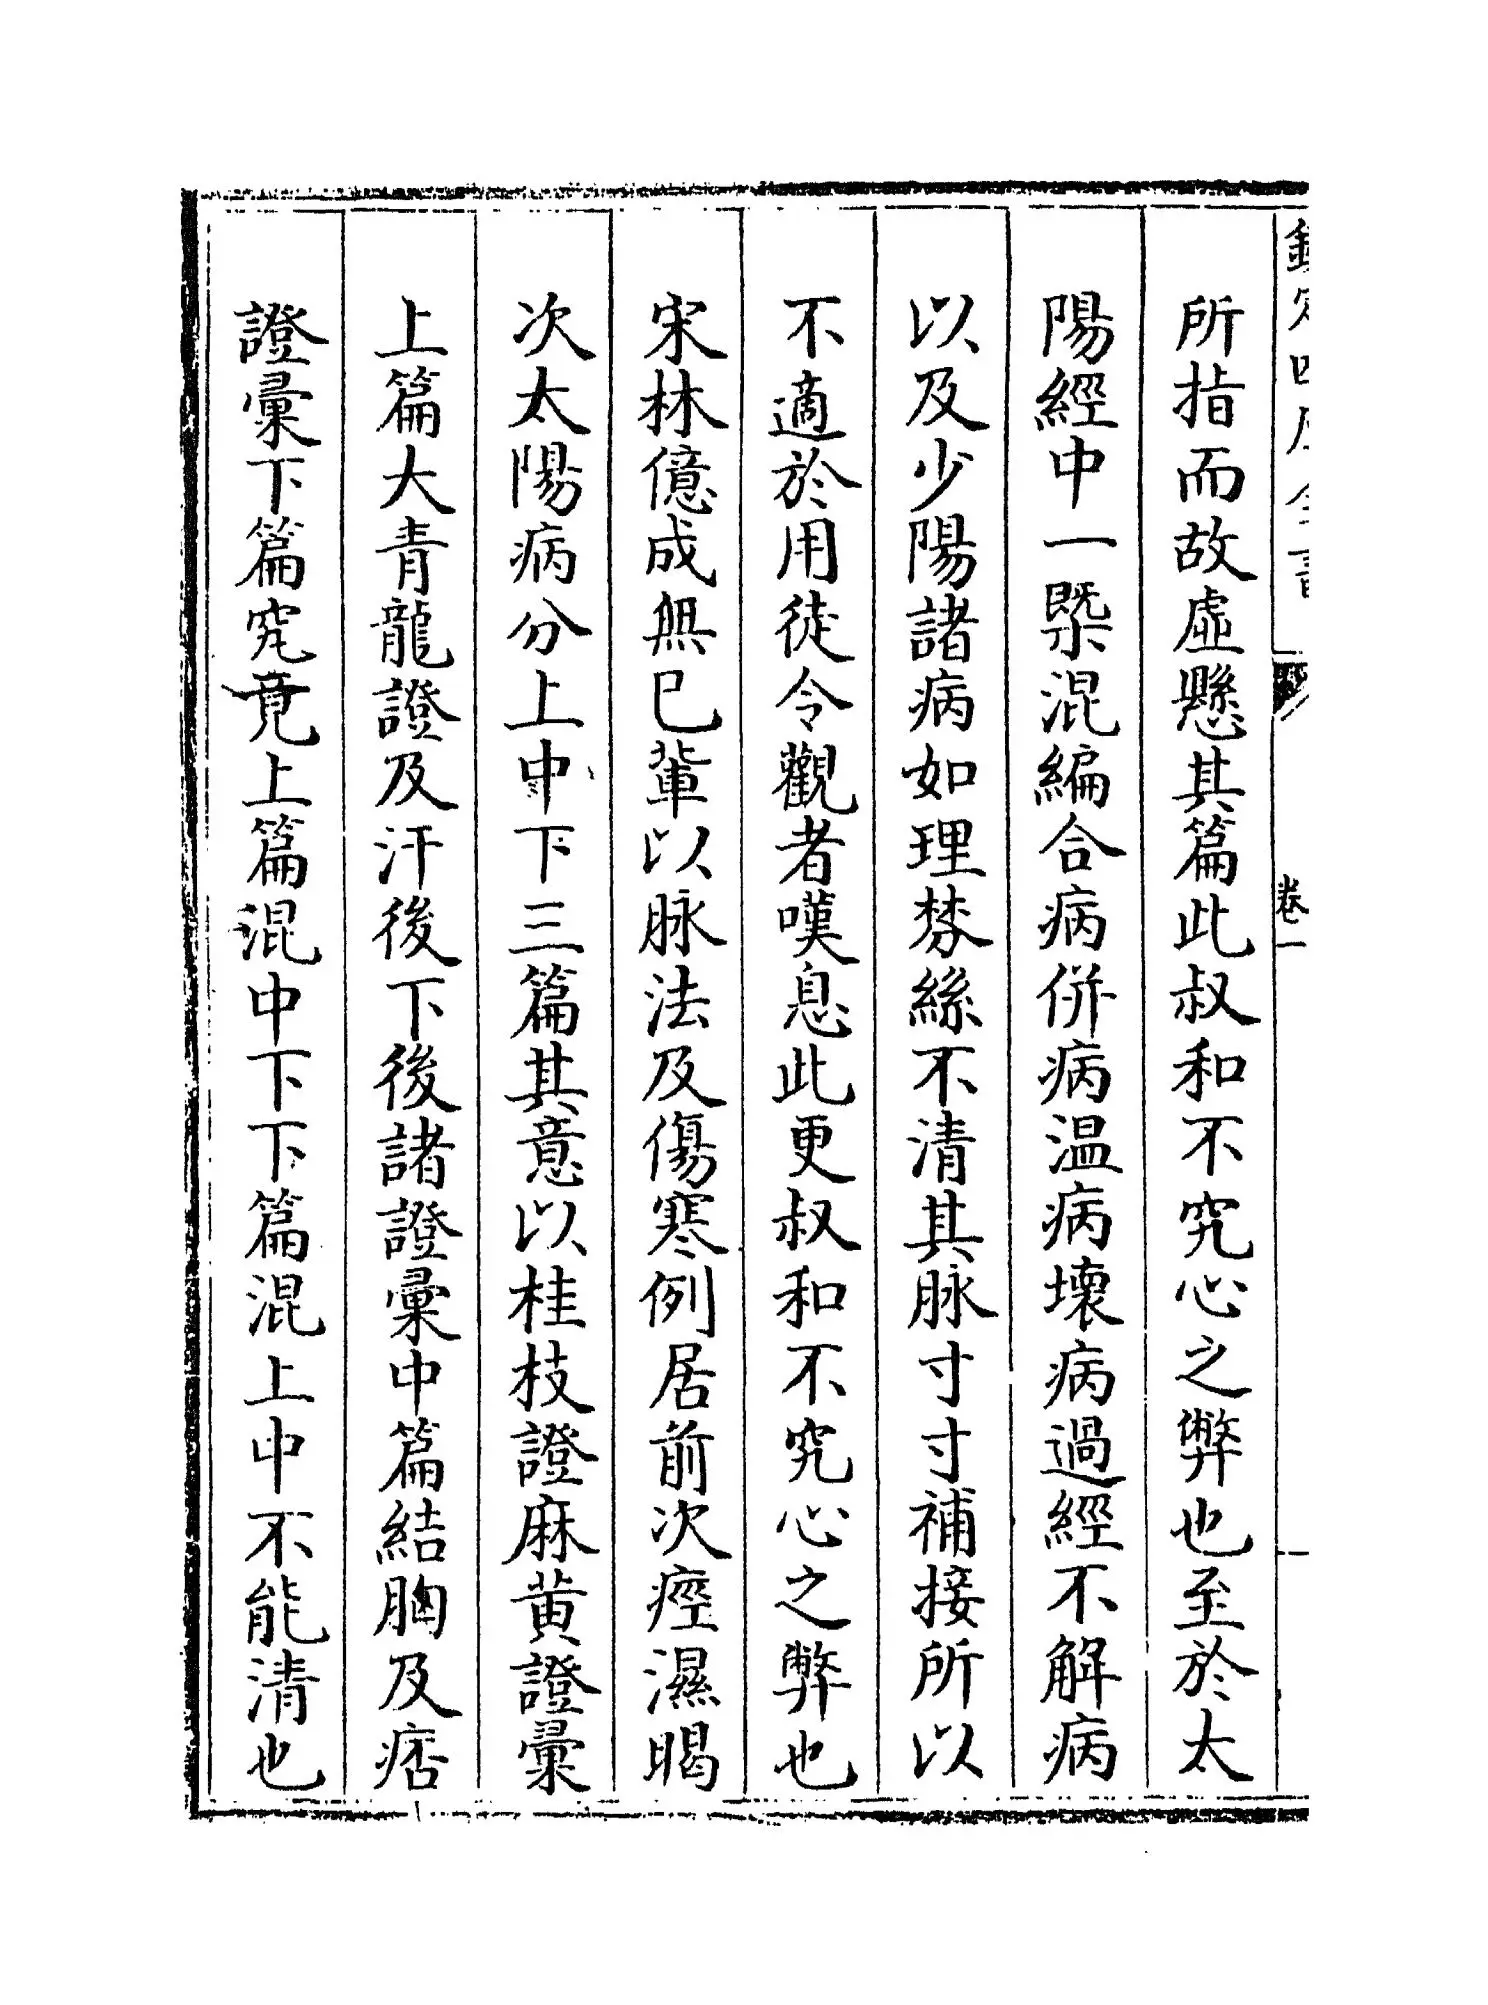 欽定四庫全書
卷一
所指而故虛懸其篇此叔和不究心之弊也至於太
陽經中一槩混編合病併病温病壞病過經不解病
以及少陽諸病如理棼絲不清其脉寸寸補接所以
不適於用徒令觀者嘆息此更叔和不究心之弊也
宋林億成無已輩以脉法及傷寒例居前次痙濕暍
次太陽病分上中下三篇其意以桂枝證麻黄證彚
上篇大青龍證及汗後下後諸證彚中篇結胸及痞
證彚下篇究竟上篇混中下下篇混上中不能清也